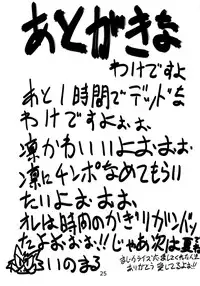 あとがきな
わけですよ
あと1時間でデッドな
わけですよぉぉ。
凛かわいいよぉぉぉ。
凛にチンポなめてもらい
たいよぉぉぉぉ。
オレは時間のかぎりガンバッ
たよぉぉぉ!!じゃあ次は夏
いのまる
ありがとう 愛してるよぉ!!
25